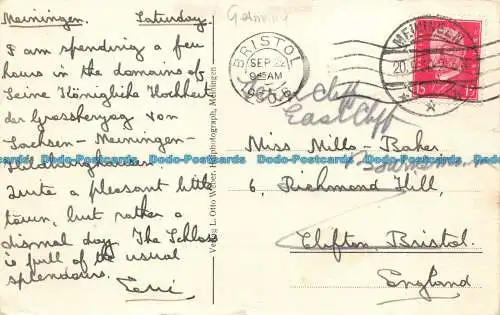 Meiningen. Saturday.
I am spending a few
hours in the domains of
Seine Königliche Hochheit
der Grossherzog von
Sachsen-Meiningen-
Hildburghausen
Quite a pleasant little
town, but rather a
dismal day. The Schloss
is full of the usual
splendours.
Verlag L. Otto Weber, Hofphotograph, Meiningen
Germany
BRISTOL
SEP 22
9 15 AM
MEININGEN
15 15
Cliff
East Cliff
Miss Mills-Baker
6, Richmond Hill,
Clifton, Bristol.
England
Dodo-Postcards Dodo-Postcards Dodo-Postcards Dodo-Postcards Dodo-Postcards